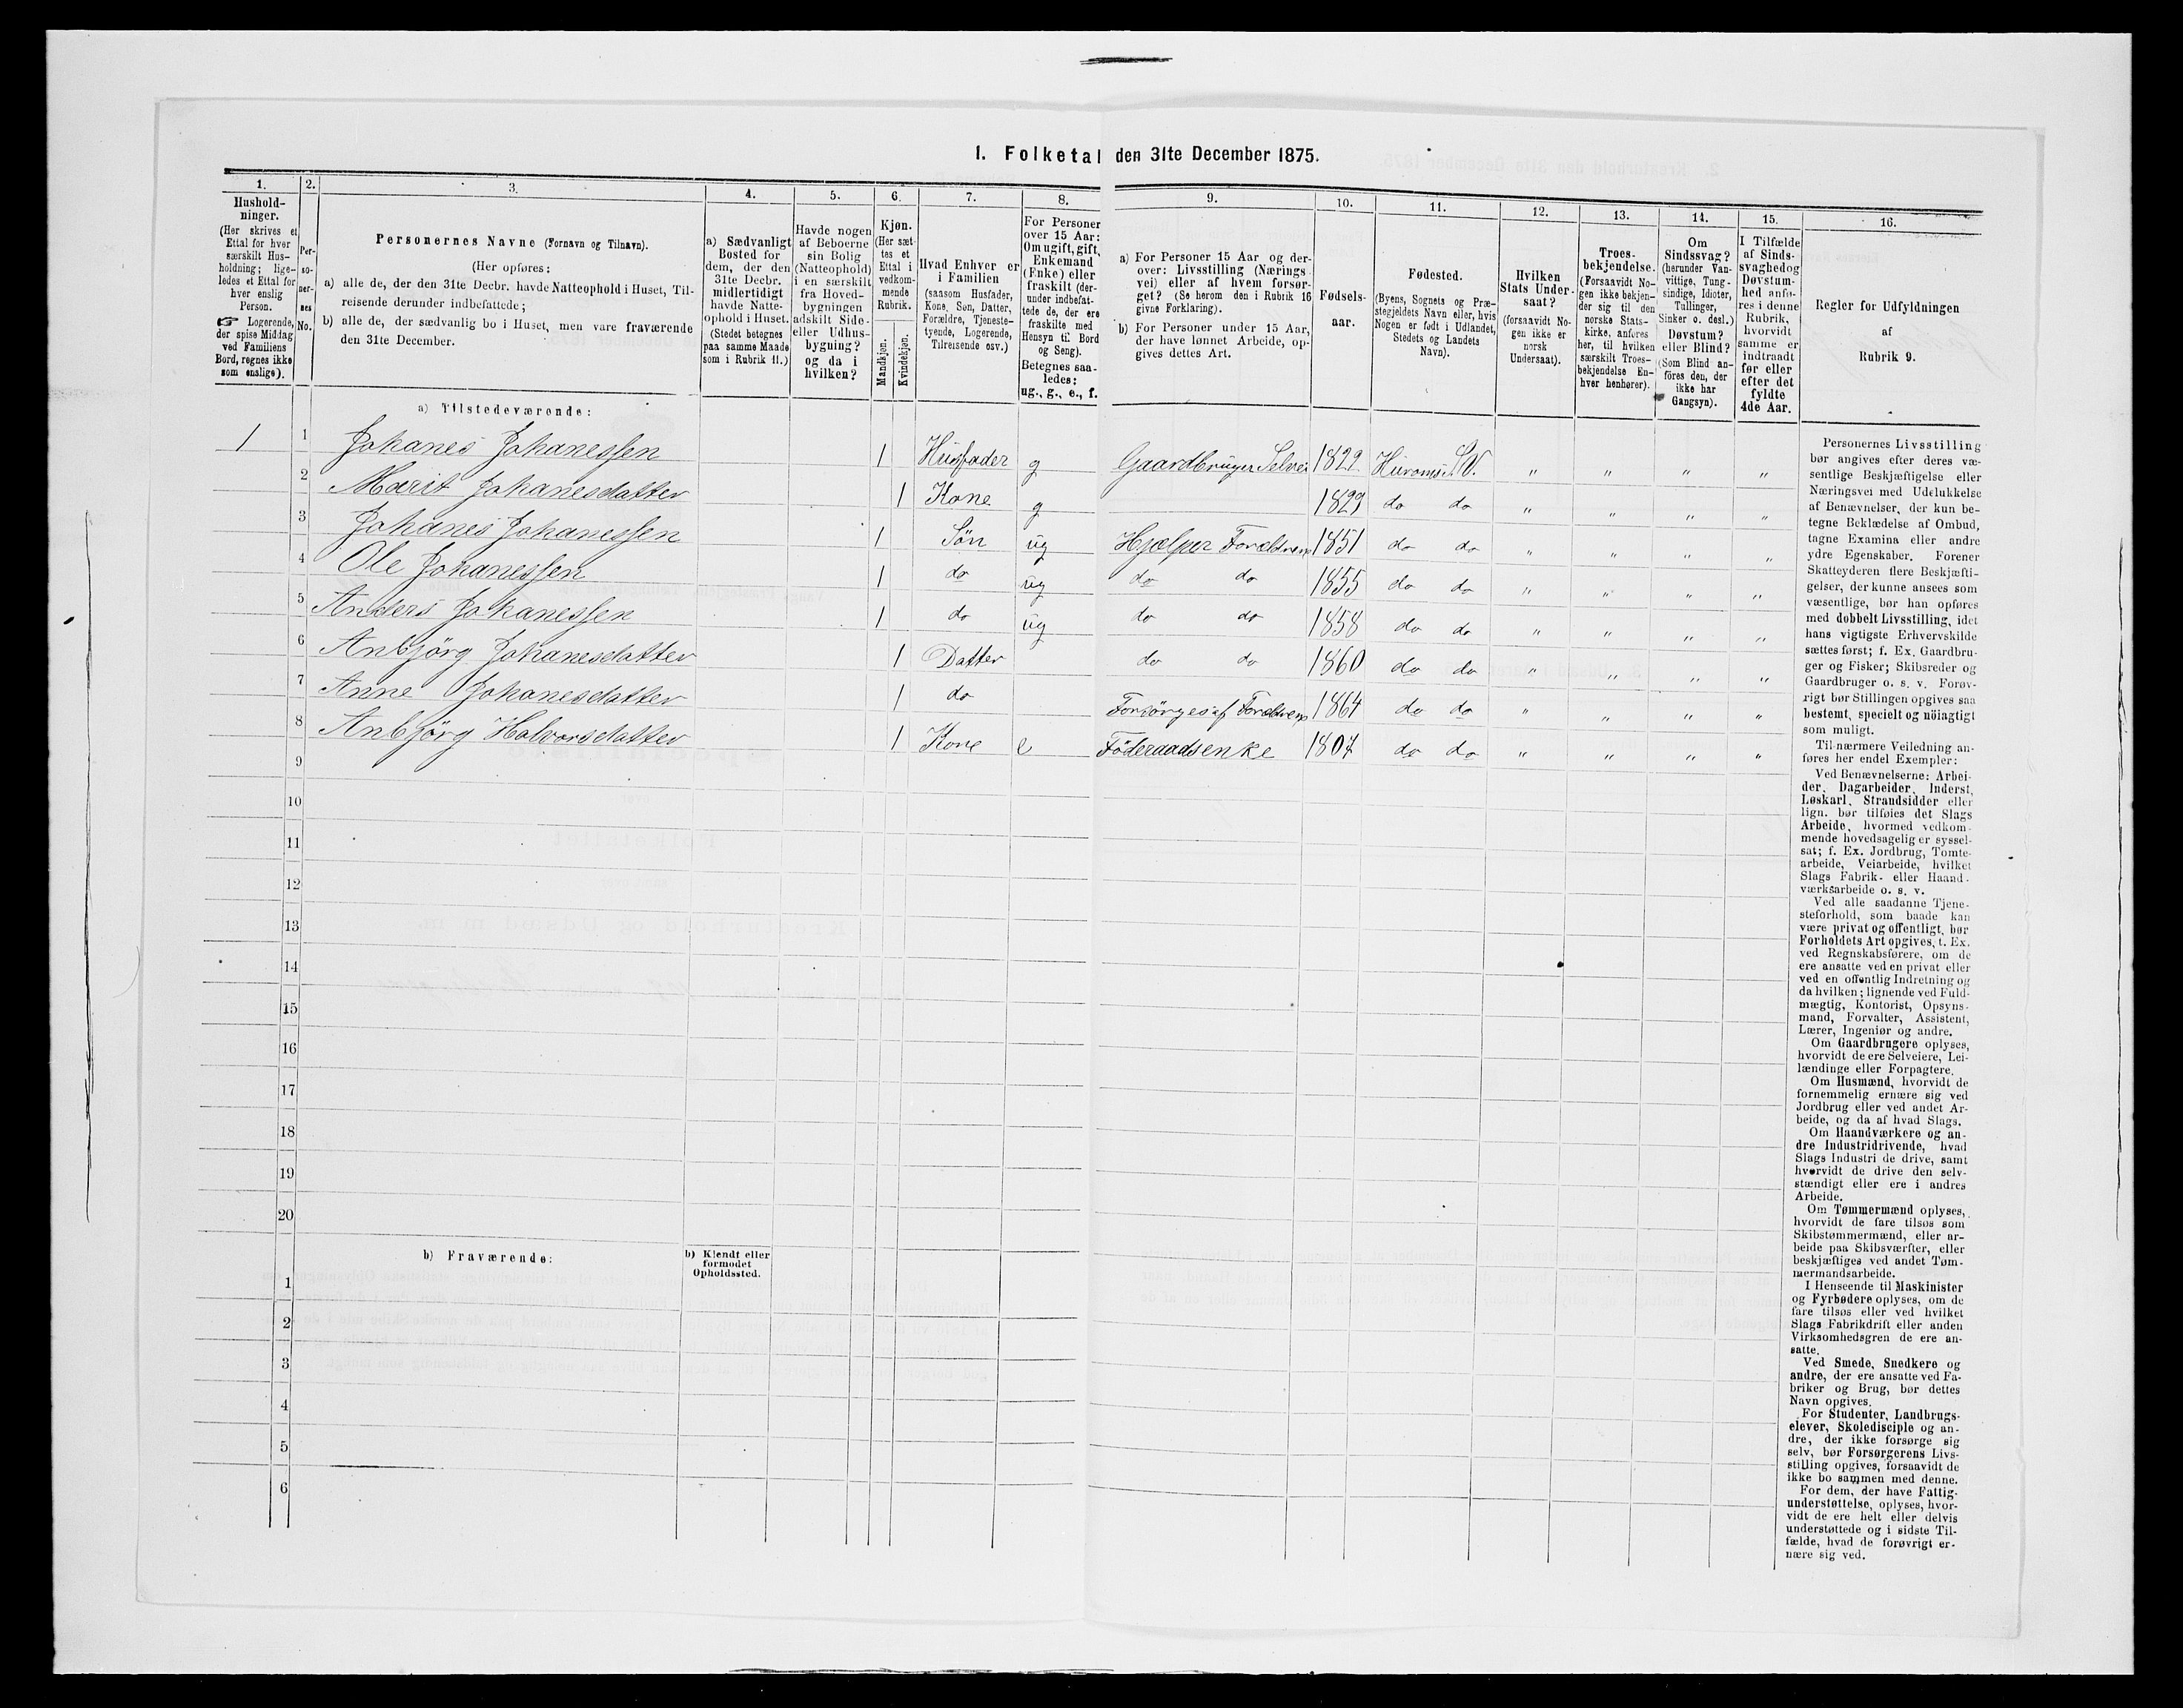 1. Folketal den 31te December 1875.
1.
Hushold-
ninger.
(Her skrives et
Ettal for hver
særskilt Hus-
holdning; lige-
ledes et Ettal for
hver enslig
Person.
☞ Logerende,
der spise Middag
ved Familiens
Bord, regnes ikke
som enslige).
2.
Per-
so-
ner-
nes
No.
3.
Personernes Navne (Fornavn og Tilnavn).
(Her opføres:
a) alle de, der den 31te Decbr. havde Natteophold i Huset, Til-
reisende derunder indbefattede;
b) alle de, der sædvanlig bo i Huset, men vare fraværende
den 31te December.
4.
a) Sædvanligt
Bosted for
dem, der den
31te Decbr.
midlertidigt
havde Natte-
ophold i Huset.
(Stedet betegnes
paa samme Maade
som i Rubrik 11.)
5.
Havde nogen
af Beboerne
sin Bolig
(Natteophold)
i en særskilt
fra Hoved-
bygningen
adskilt Side-
eller Udhus-
bygning?
og da i
hvilken?
6.
Kjøn.
(Her sæt-
tes et
Ettal i
vedkom-
mende
Rubrik.
Mandkjøn.
Kvindekjøn.
7.
Hvad Enhver er
i Familien
(saasom Husfader,
Kone, Søn, Datter,
Forældre, Tjeneste-
tyende, Logerende,
Tilreisende osv.)
8.
For Personer
over 15 Aar:
Om ugift, gift,
Enkemand
(Enke) eller
fraskilt (der-
under indbefat-
tede de, der ere
fraskilte med
Hensyn til Bord
og Seng).
Betegnes saa-
ledes:
ug., g., e., f.
9.
a) For Personer 15 Aar og der-
over: Livsstilling (Nærings-
vei) eller af hvem forsør-
get? (Se herom den i Rubrik 16
givne Forklaring).
b) For Personer under 15 Aar,
der have lønnet Arbeide, op-
gives dettes Art.
10.
Fødsels-
aar.
11.
Fødested.
(Byens, Sognets og Præ-
stegjeldets Navn eller, hvis
Nogen er født i Udlandet,
Stedets og Landets
Navn).
12.
Hvilken
Stats Under-
saat?
(forsaavidt No-
gen ikke er
norsk
Undersaat).
13.
Troes-
bekjendelse.
(Forsaavidt No-
gen ikke bekjen-
der sig til den
norske Stats-
kirke, anføres
her, til hvilken
særskilt Troes-
bekjendelse En-
hver henhører).
14.
Om
Sindssvag?
(herunder Van-
vittige, Tung-
sindige, Idioter,
Tullinger,
Sinker o. desl.)
Døvstum?
eller Blind?
(Som Blind an-
føres den, der
ikke har
Gangsyn).
15.
I Tilfælde
af Sinds-
svaghed og
Døvstum-
hed anfø-
res i denne
Rubrik,
hvorvidt
samme er
indtraadt
før eller
efter det
fyldte
4de Aar.
16.
Regler for Udfyldningen
af
Rubrik 9.
a) Tilstedeværende:
1 1 Johanes Johanessen 1 Husfader g Gaardbruger Selvei 1829 Huroms S. V. " " " "
2 Marit Johanesdatter 1 Kone g 1829 do do " " " "
3 Johanes Johanessen 1 Søn ug Hjælper Forældrene 1851 do do " " " "
4 Ole Johanessen 1 do ug do do 1855 do do " " " "
5 Anders Johanessen 1 do ug do do 1858 do do " " " "
6 Anbjörg Johanesdatter 1 Datter do do 1860 do do " " " "
7 Anne Johanesdatter 1 do Forsörges af Forældrene 1864 do do " " " "
8 Anbjörg Halvorsdatter 1 Kone e Föderaadsenke 1807 do do " " " "
9
10
11
12
13
14
15
16
17
18
19
20
b) Fraværende:
b) Kjendt eller
formodet
Opholdssted.
1
2
3
4
5
6
Personernes Livsstilling
bør angives efter deres væ-
sentlige Beskjæftigelse eller
Næringsvei med Udelukkelse
af Benævnelser, der kun be-
tegne Beklædelse af Ombud,
tagne Examina eller andre
ydre Egenskaber. Forener
Skatteyderen flere Beskjæfti-
gelser, der kunne ansees som
væsentlige, bør han opføres
med dobbelt Livsstilling, idet
hans vigtigste Erhvervskilde
sættes først; f. Ex. Gaardbru-
ger og Fisker; Skibsreder og
Gaardbruger o. s. v. Forøv-
rigt bør Stillingen opgives saa
bestemt, specielt og nøiagtigt
som muligt.
Til nærmere Veiledning an-
føres her endel Exempler:
Ved Benævnelserne: Arbei-
der, Dagarbeider, Inderst,
Løskarl, Strandsidder eller
lign. bør tilføies det Slags
Arbeide, hvormed vedkom-
mende hovedsagelig er syssel-
sat; f. Ex. Jordbrug, Tomte-
arbeide, Veiarbeide, hvilket
Slags Fabrik- eller Haand-
værksarbeide o. s. v.
Ved alle saadanne Tjene-
steforhold, som baade kan
være privat og offentligt, bør
Forholdets Art opgives, t. Ex.
ved Regnskabsførere, om de
ere ansatte ved en privat eller
ved en offentlig Indretning og
da hvilken; lignende ved Fuld-
mægtig, Kontorist, Opsyns-
mand, Forvalter, Assistent,
Lærer, Ingeniør og andre.
Om Gaardbrugere oplyses,
hvorvidt de ere Selveiere, Lei-
lændinge eller Forpagtere.
Om Husmænd, hvorvidt de
fornemmelig ernære sig ved
Jordbrug eller ved andet Ar-
beide, og da af hvad Slags.
Om Haandværkere og an-
dre Industridrivende, hvad
Slags Industri de drive, samt
hvorvidt de drive den selv-
stændigt eller ere i andres
Arbeide.
Om Tømmermænd oplyses,
hvorvidt de fare tilsøs som
Skibstømmermænd, eller ar-
beide paa Skibsværfter, eller
beskjæftiges ved andet Tøm-
mermandsarbeide.
I Henseende til Maskinister
og Fyrbødere oplyses, om de
fare tilsøs eller ved hvilket
Slags Fabrikdrift eller anden
Virksomhedsgren de ere an-
satte.
Ved Smede, Snedkere og
andre, der ere ansatte ved Fa-
briker og Brug, bør dettes
Navn opgives.
For Studenter, Landbrugs-
elever, Skoledisciple og an-
dre, der ikke forsørge sig
selv, bør Forsørgerens Livs-
stilling opgives, forsaavidt de
ikke bo sammen med denne.
For dem, der have Fattig-
understøttelse, oplyses, hvor-
vidt de ere helt eller delvis
understøttede og i sidste Til-
fælde, hvad de forøvrigt er-
nære sig ved.